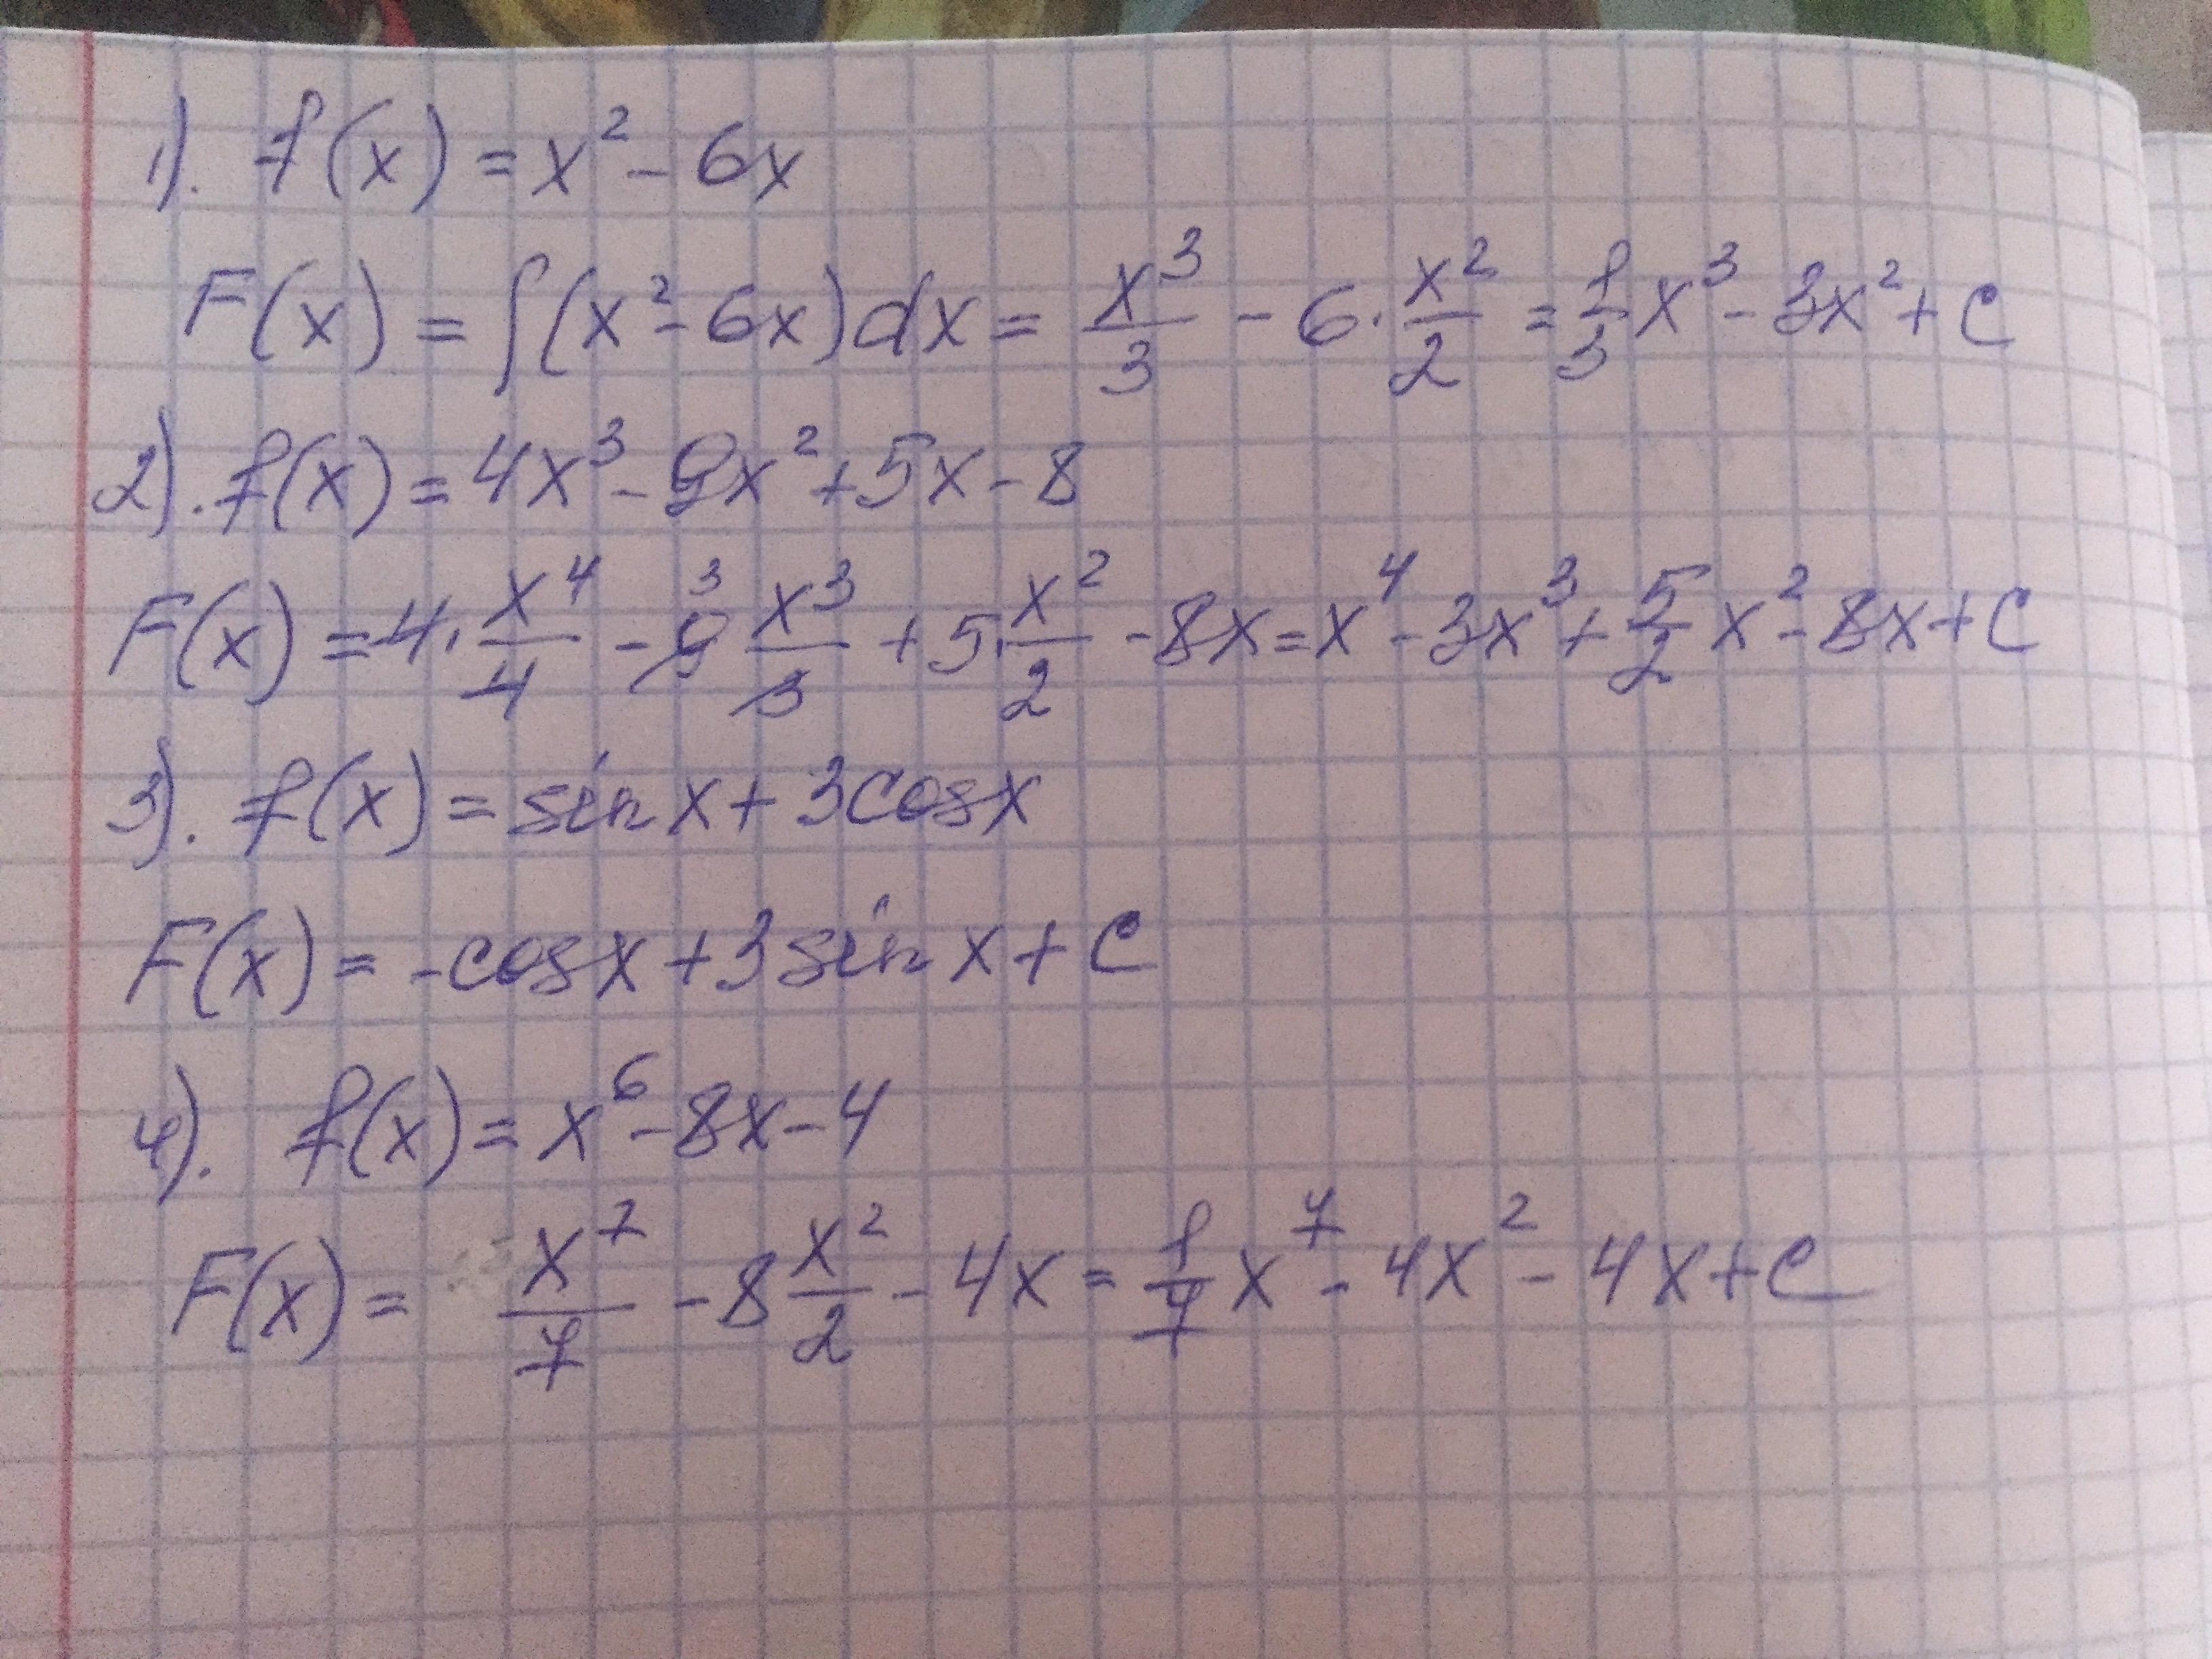 1). f(x) = x² - 6x
F(x) = ∫(x² - 6x)dx = x³/3 - 6·x²/2 = 1/3 x³ - 3x² + C
2). f(x) = 4x³ - 9x² + 5x - 8
F(x) = 4·x⁴/4 - 9 ³ x³/3 + 5·x²/2 - 8x = x⁴ - 3x³ + 5/2 x² - 8x + C
3). f(x) = sin x + 3cos x
F(x) = -cos x + 3 sin x + C
4). f(x) = x⁶ - 8x - 4
F(x) = x⁷/7 - 8 x²/2 - 4x = 1/7 x⁷ - 4x² - 4x + C